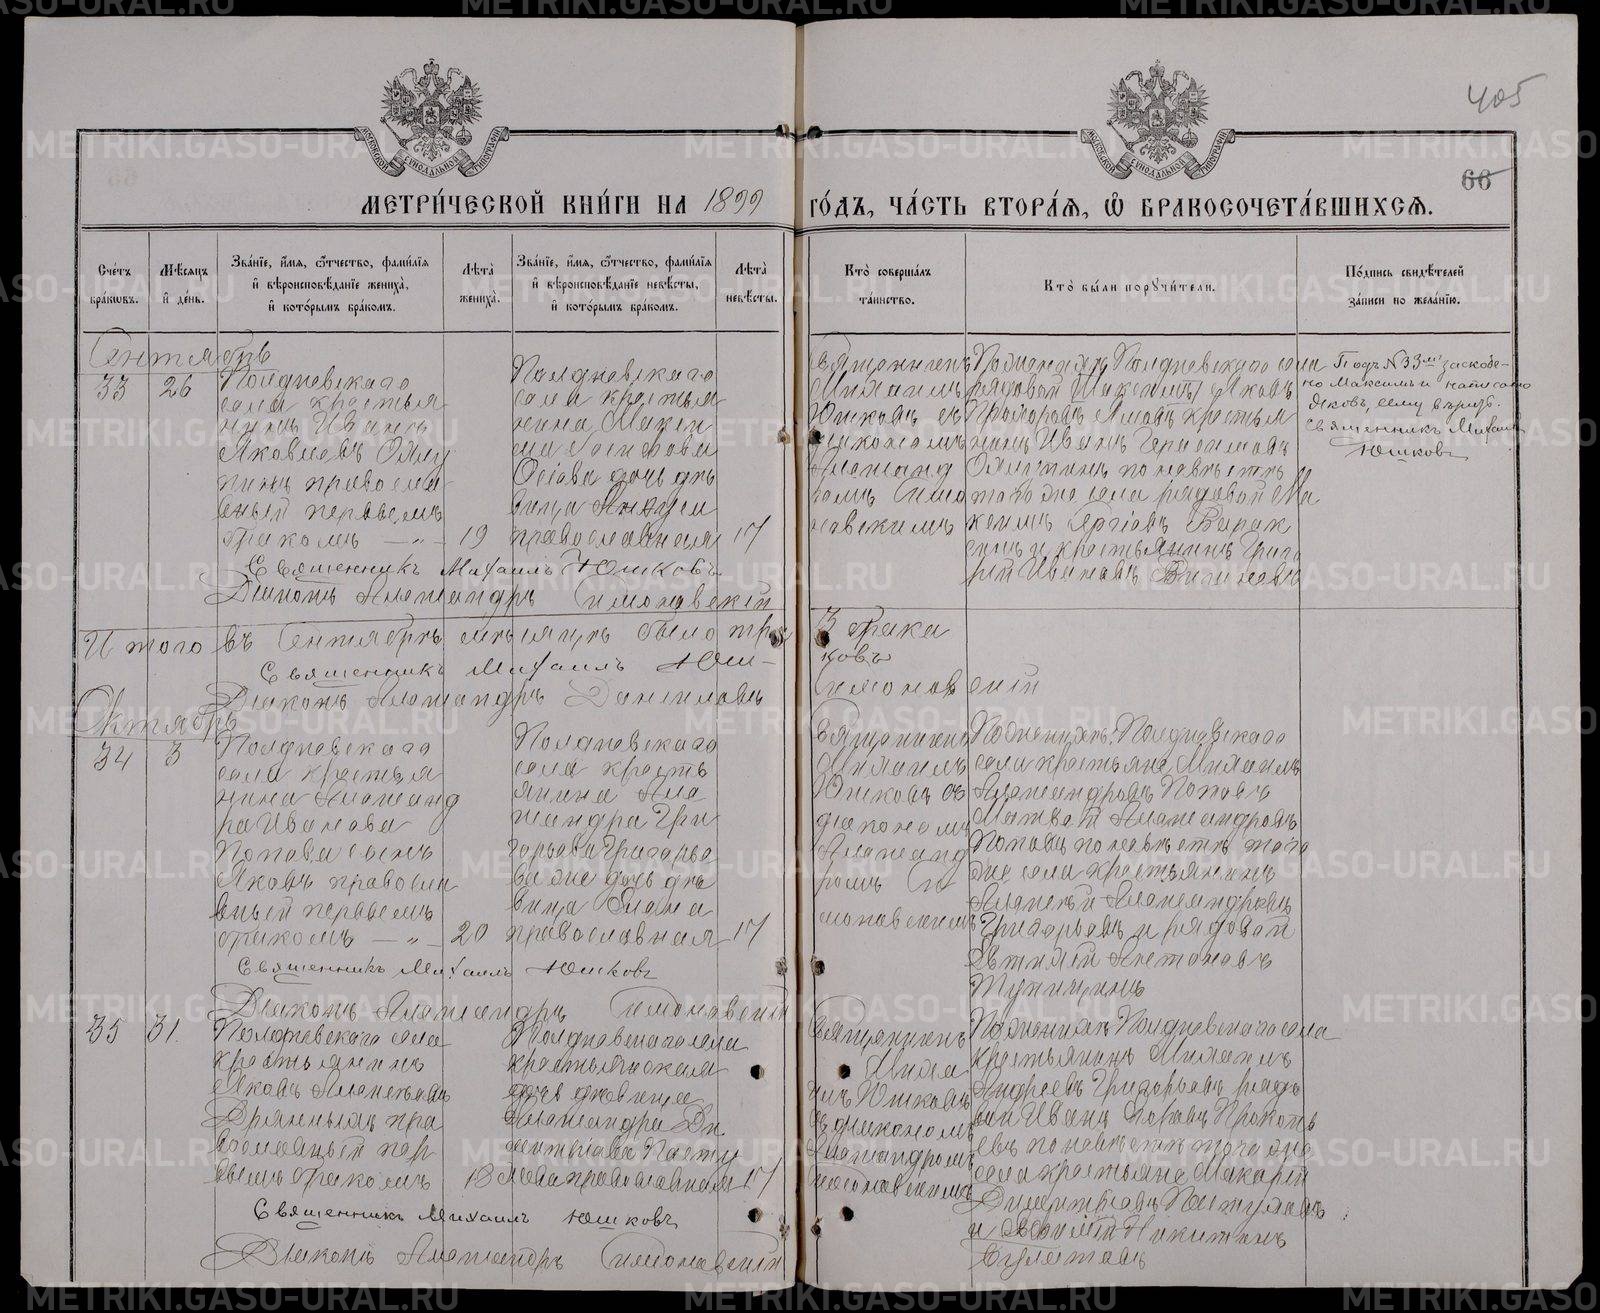 405
66
МОСКОВСКОЙ СѴНОДАЛЬНОЙ ТИПОГРАФІИ
МОСКОВСКОЙ СѴНОДАЛЬНОЙ ТИПОГРАФІИ
МЕТРИ́ЧЕСКОЙ КНИ́ГИ НА 1899 ГО́ДЪ, ЧА́СТЬ ВТОРА́Я, Ѽ БРАКОСОЧЕТА́ВШИХСЯ.
Сче́тъ бра́ковъ.
Мѣ́сяцъ и де́нь.
Зва́нїе, и́мя, ѻ́тчество, фами́лїя и вѣроисповѣ́данїе жениха̀, и кото́рымъ бра́комъ.
Лѣта̀ жениха̀.
Зва́нїе, и́мя, ѻ́тчество, фами́лїя и вѣроисповѣ́данїе невѣ́сты, и кото́рымъ бра́комъ.
Лѣта̀ невѣ́сты.
Кто̀ соверша́лъ та́инство.
Кто̀ бы́ли порꙋчи́тели.
По́дпись свидѣ́телей за́писи по жела́нїю.
Сентябрь
33
26
Полдневскаго
села крестья
нинъ Иванъ
Яковлевъ
православный
первымъ
бракомъ — „ —
19
Полдневскаго
села крестья
нина Макси
ма
дочь дѣ
вица
православная
17
Священникъ
Михаилъ
Юшковъ съ
діакономъ
Александ
ромъ Симо
новскимъ
По женихѣ Полдневскаго села
рядовой Максимъ Яковъ
крестья
нинъ Иванъ Герасимовъ
по невѣстѣ
того же села рядовой Ма
ксимъ
и крестьянинъ Григо
рій Ивановъ
Подъ № 33мъ заскобле-
но Максимъ и написано
Яковъ, сему вѣрить.
Священникъ Михаилъ
Юшковъ
Священникъ Михаилъ Юшковъ
Діаконъ Александръ Симоновскій
Итого въ Сентябрѣ мѣсяцѣ было три 3 брака
Священникъ Михаилъ Юш-
ковъ
Діаконъ Александръ Даниловъ Симоновскій
Октябрь
34
3
Полдневскаго
села крестья
нина Александ
ра Иванова
Попова сынъ
Яковъ правосла
вный первымъ
бракомъ — „ —
20
Полдневскаго
села кресть
янина Але
ксандра Гри
горьева Григорье
ва же дочь дѣ
вица
православная
17
Священникъ
Михаилъ
Юшковъ съ
діакономъ
Александ
ромъ Си
моновскимъ
По женихѣ: Полдневскаго
села крестьяне Михаилъ
Александровъ Поповъ
Матвей Александровъ
Поповъ по невѣстѣ того
же села крестьянинъ
Алексѣй Александровъ
Григорьевъ и рядовой
Антоновъ
Священникъ Михаилъ Юшковъ
Діаконъ Александръ Симоновскій
35
31.
Полдневскаго села
крестьянинъ
Яковъ Алексѣевъ
пра
вославный пер
вымъ бракомъ
18
Полдневскаго села
крестьянская
дочь дѣвица
Александра Ди
ментіева
православная
17
Священникъ
Миха
илъ Юшковъ
съ діакономъ
Александромъ
Симоновскимъ
По женихѣ Полдневскаго села
крестьянинъ Михаилъ
Андреевъ Григорьевъ рядо
вой Иванъ Прокопь
евъ по невѣстѣ того же
села крестьяне Макарій
Диментьевъ
и Никитинъ
Священникъ Михаилъ Юшковъ
Діаконъ Александръ Симоновскій
METRIKI.GASO-URAL.RU